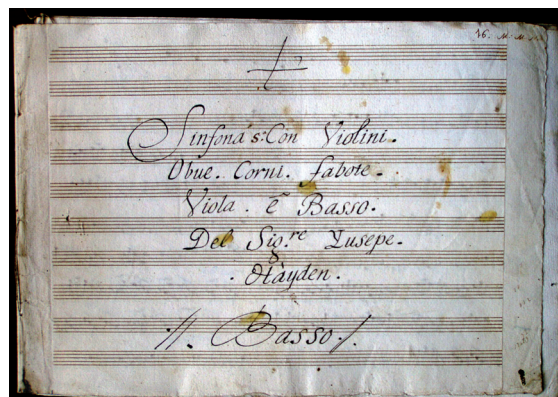 16. M. M.
Sinfona s: Con Violini.
Obue. Corni. fabote.
Viola. ē Basso.
Del Sig.re Yusepe.
Hàyden.
//. Basso /.